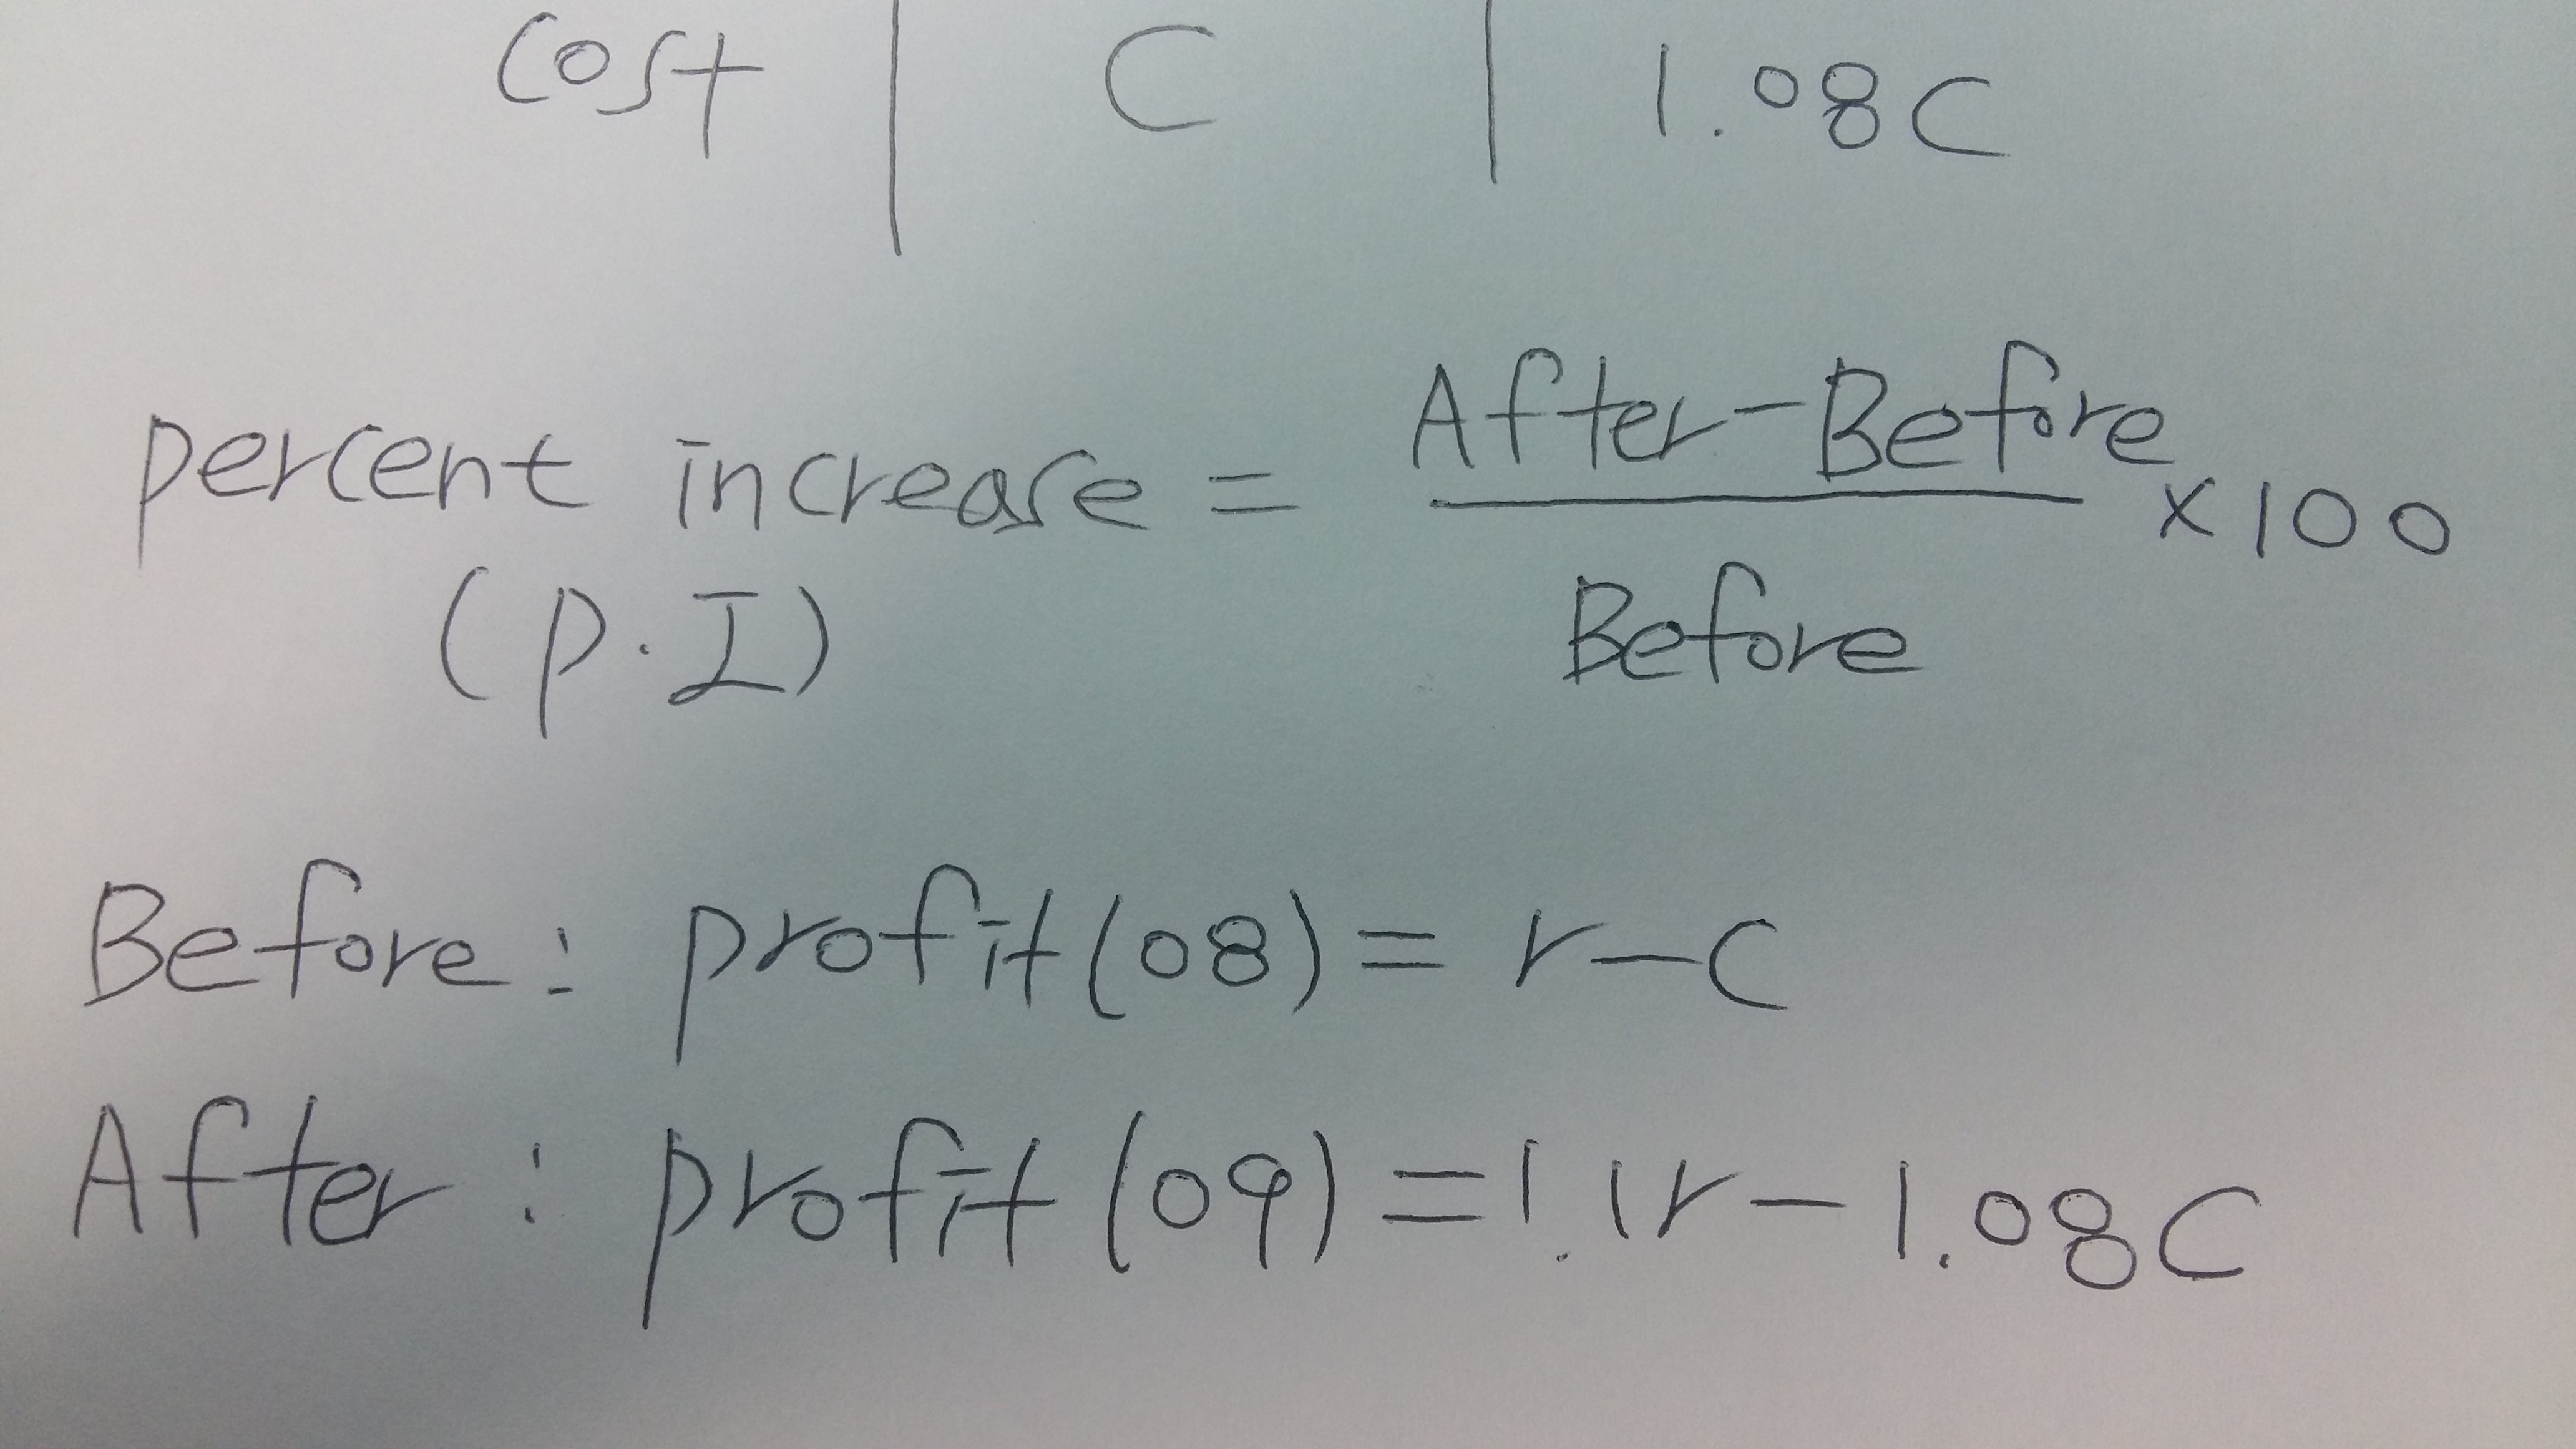 cost | C | 1.08C
percent increase = After-Before / Before ×100
(P.I)
Before: profit(08) = r-C
After: profit(09) = 1.1r - 1.08C